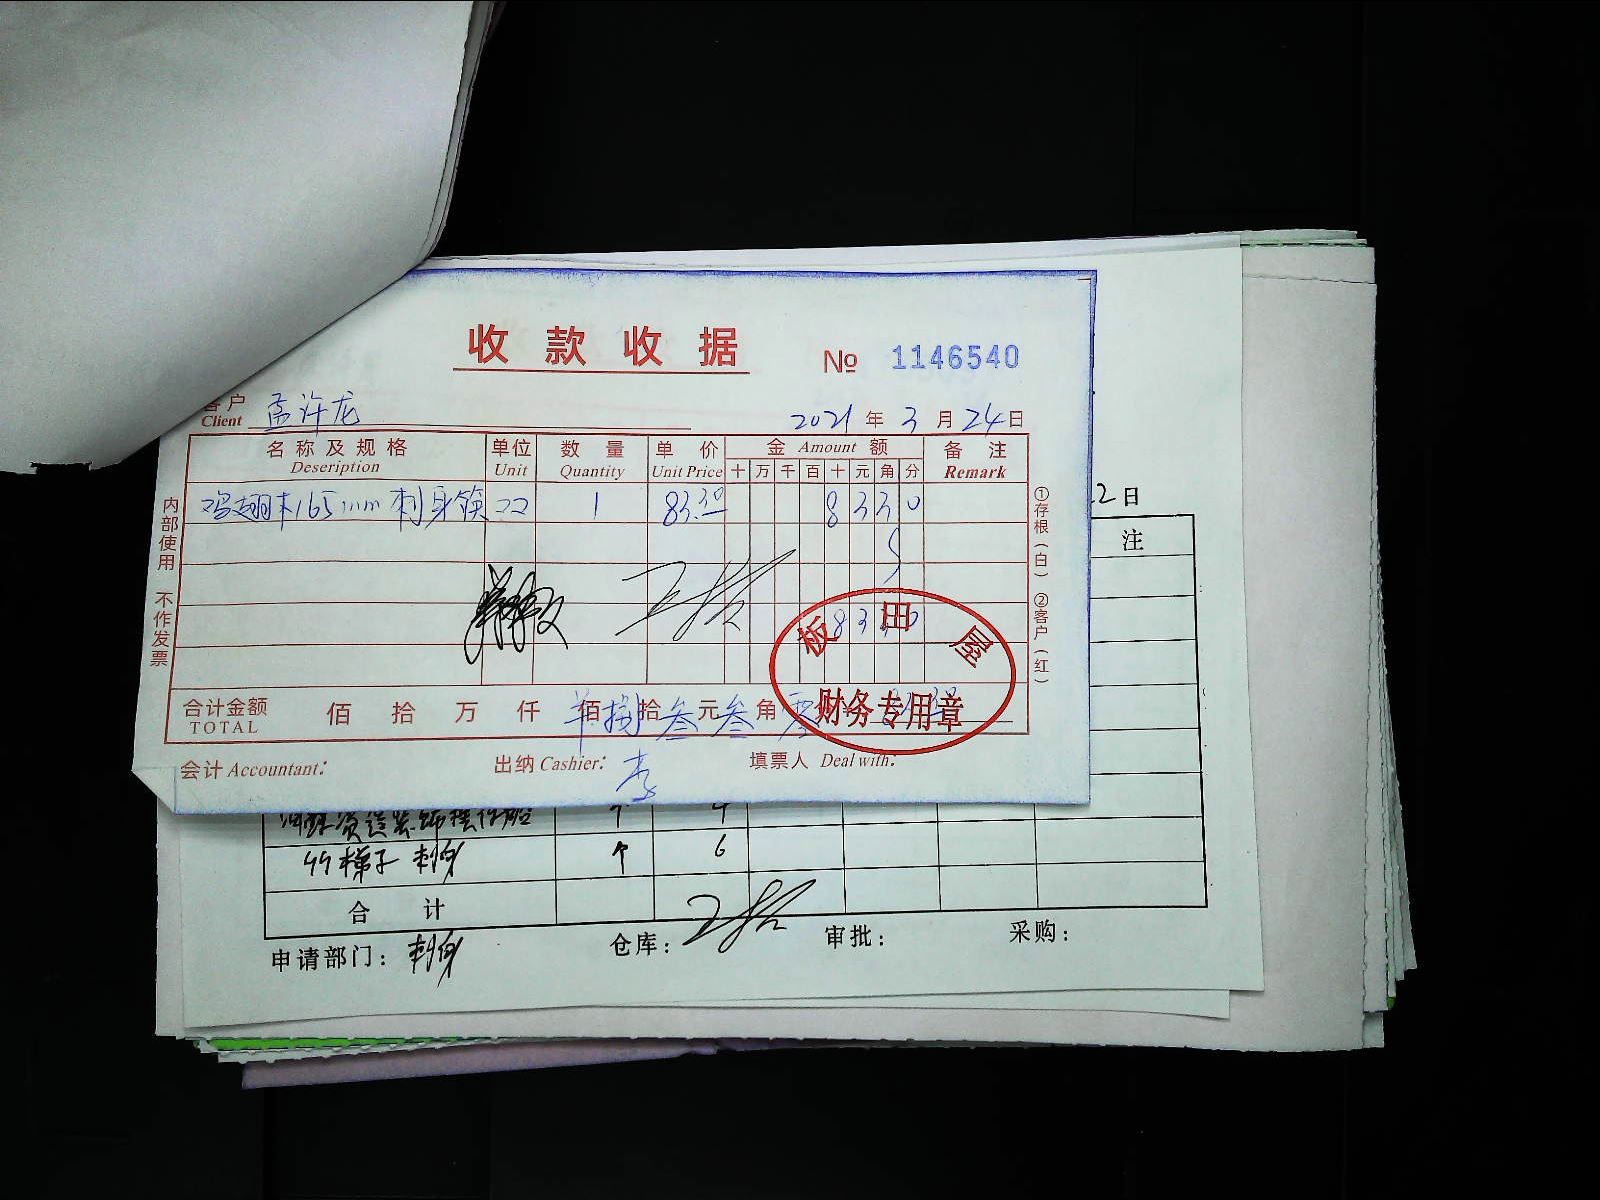 收款收据 № 1146540
客户 Client 孟许龙 2021年3月24日
名称及规格 Deseription 单位 Unit 数量 Quantity 单价 Unit Price 金额 Amount 备注 Remark
十 万 千 百 十 元 角 分
鸡翅木165mm刺身筷 1 83.30 8 3 3 0
8 3 3 0
合计金额 TOTAL 佰 拾 万 仟 佰 捌 拾 叁 元 叁 角 零
会计 Accountant: 出纳 Cashier: 李 填票人 Deal with:
内部使用 不作发票
①存根(白) ②客户(红)
板田屋
财务专用章
2日
注
梯子 刺身 个 6
合计
申请部门: 刺身 仓库: 审批: 采购: